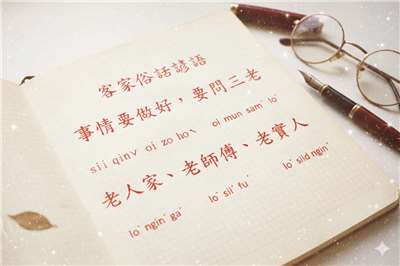 客家俗話諺語
事情要做好，要問三老
sii qinv oi zo hoˋ oi mun samˊ loˋ
老人家、老師傅、老實人
loˋ nginˇ gaˊ loˋ silˊ fu loˋ siid nginˇ